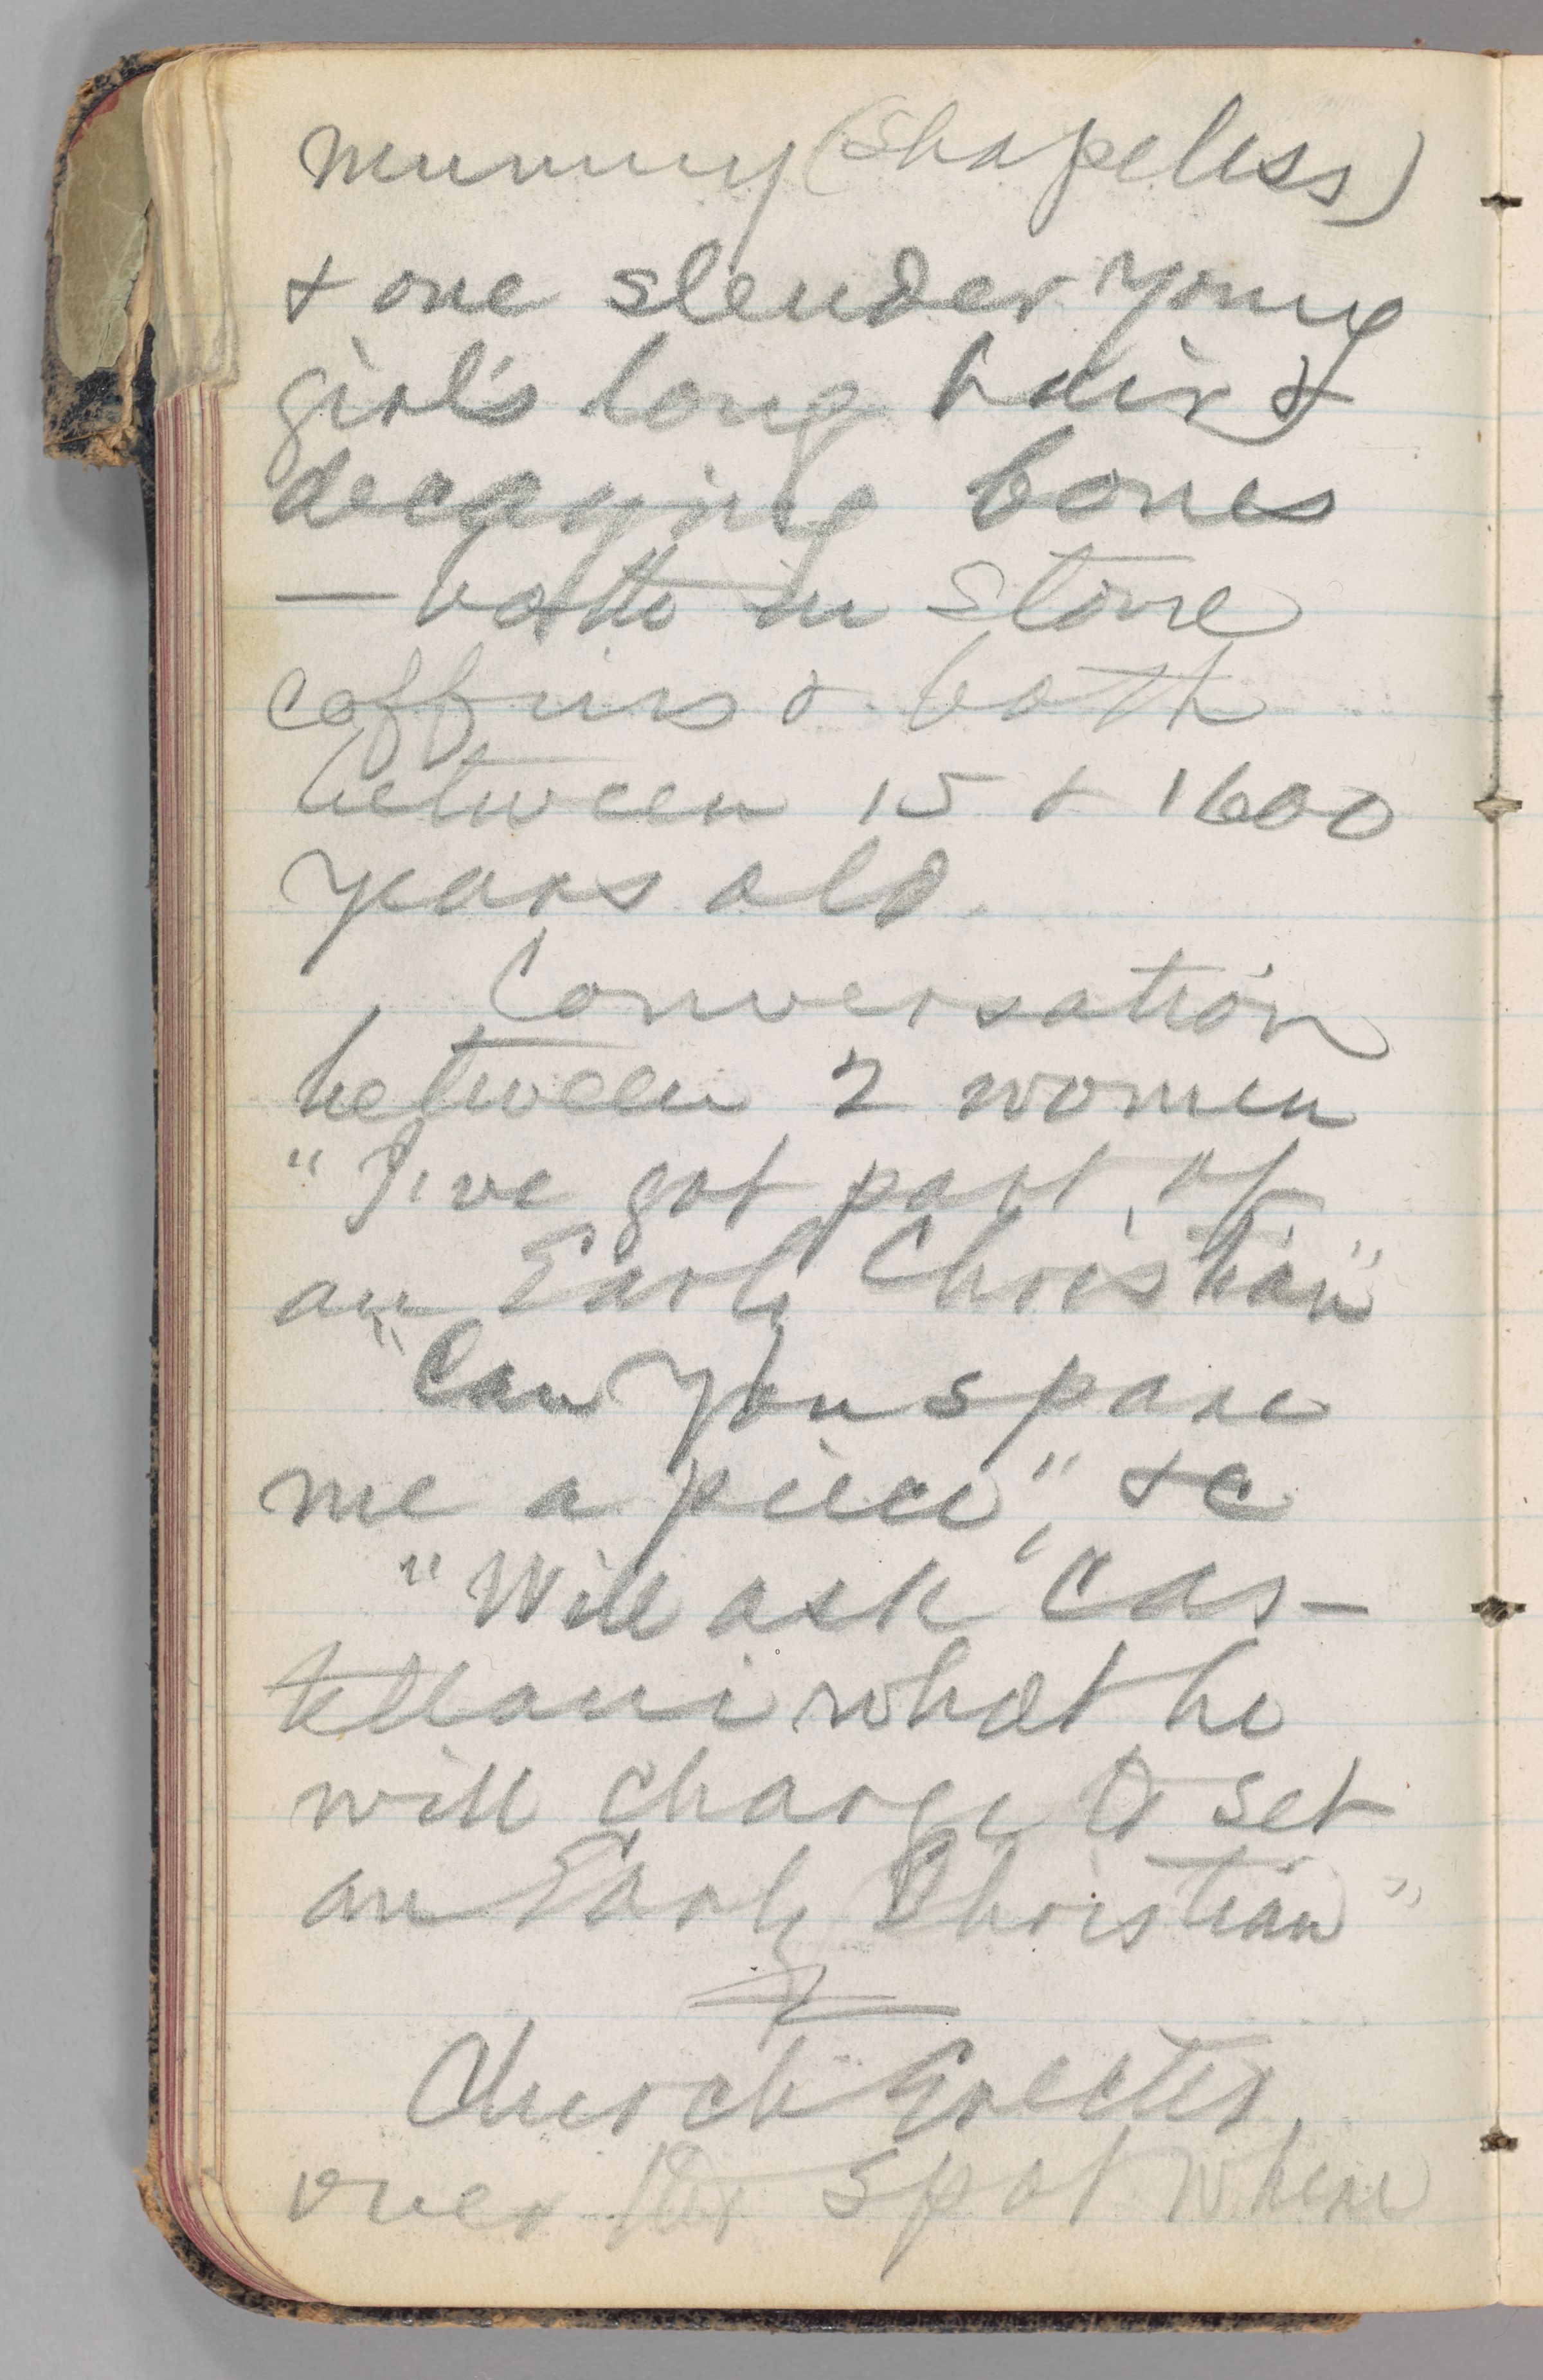 mummy (shapeless)
& one slender young
girl's long hair &
decaying bones
— both in stone
coffins & both
between 15 & 1600
years old.
Conversation
between 2 women
"I've got part of
an Early Christian"
"Can you spare
me a piece," &c
"Will ask Cas-
tellani what he
will charge to set
an Early Christian"
Church Erected
over the spot where